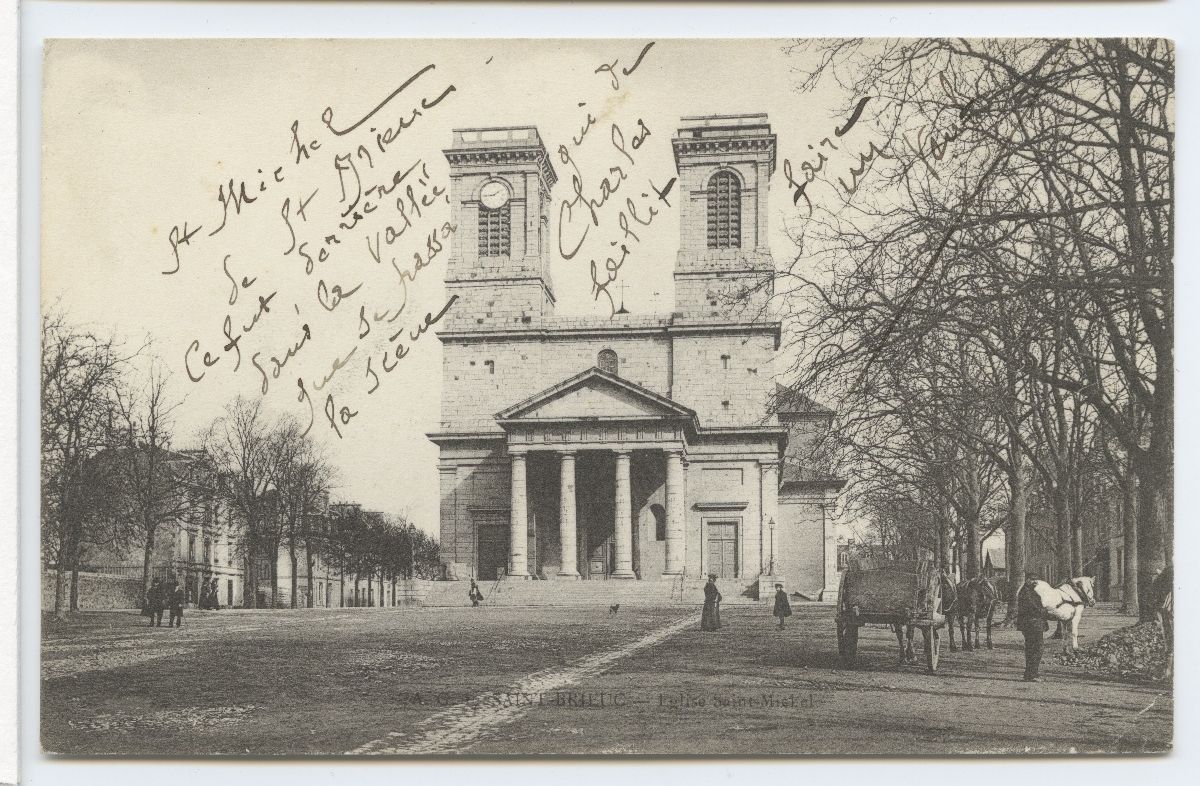 St Michel
de St Brieuc
Ce fut derrière
dans la vallée
que se passa
la scène
qui de
Charles
faillit
faire
un fou
A. G. - SAINT-BRIEUC — Eglise Saint-Michel